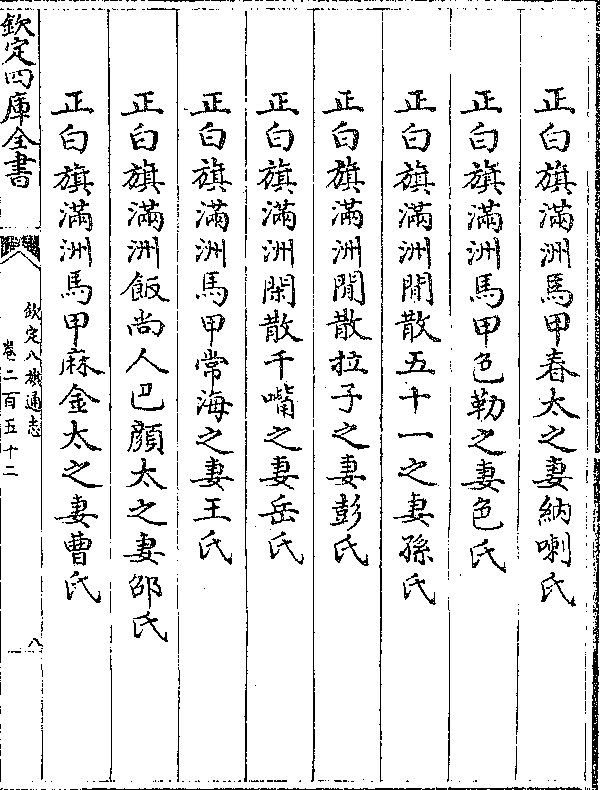 正白旗滿洲馬甲春太之妻納喇氏
正白旗滿洲馬甲色勒之妻色氏
正白旗滿洲閒散五十一之妻孫氏
正白旗滿洲閒散拉子之妻彭氏
正白旗滿洲閑散千嘴之妻岳氏
正白旗滿洲馬甲常海之妻王氏
正白旗滿洲飯尚人巴顔太之妻邵氏
正白旗滿洲馬甲麻金太之妻曹氏
欽定四庫全書
欽定八旗通志
卷二百五十二
八